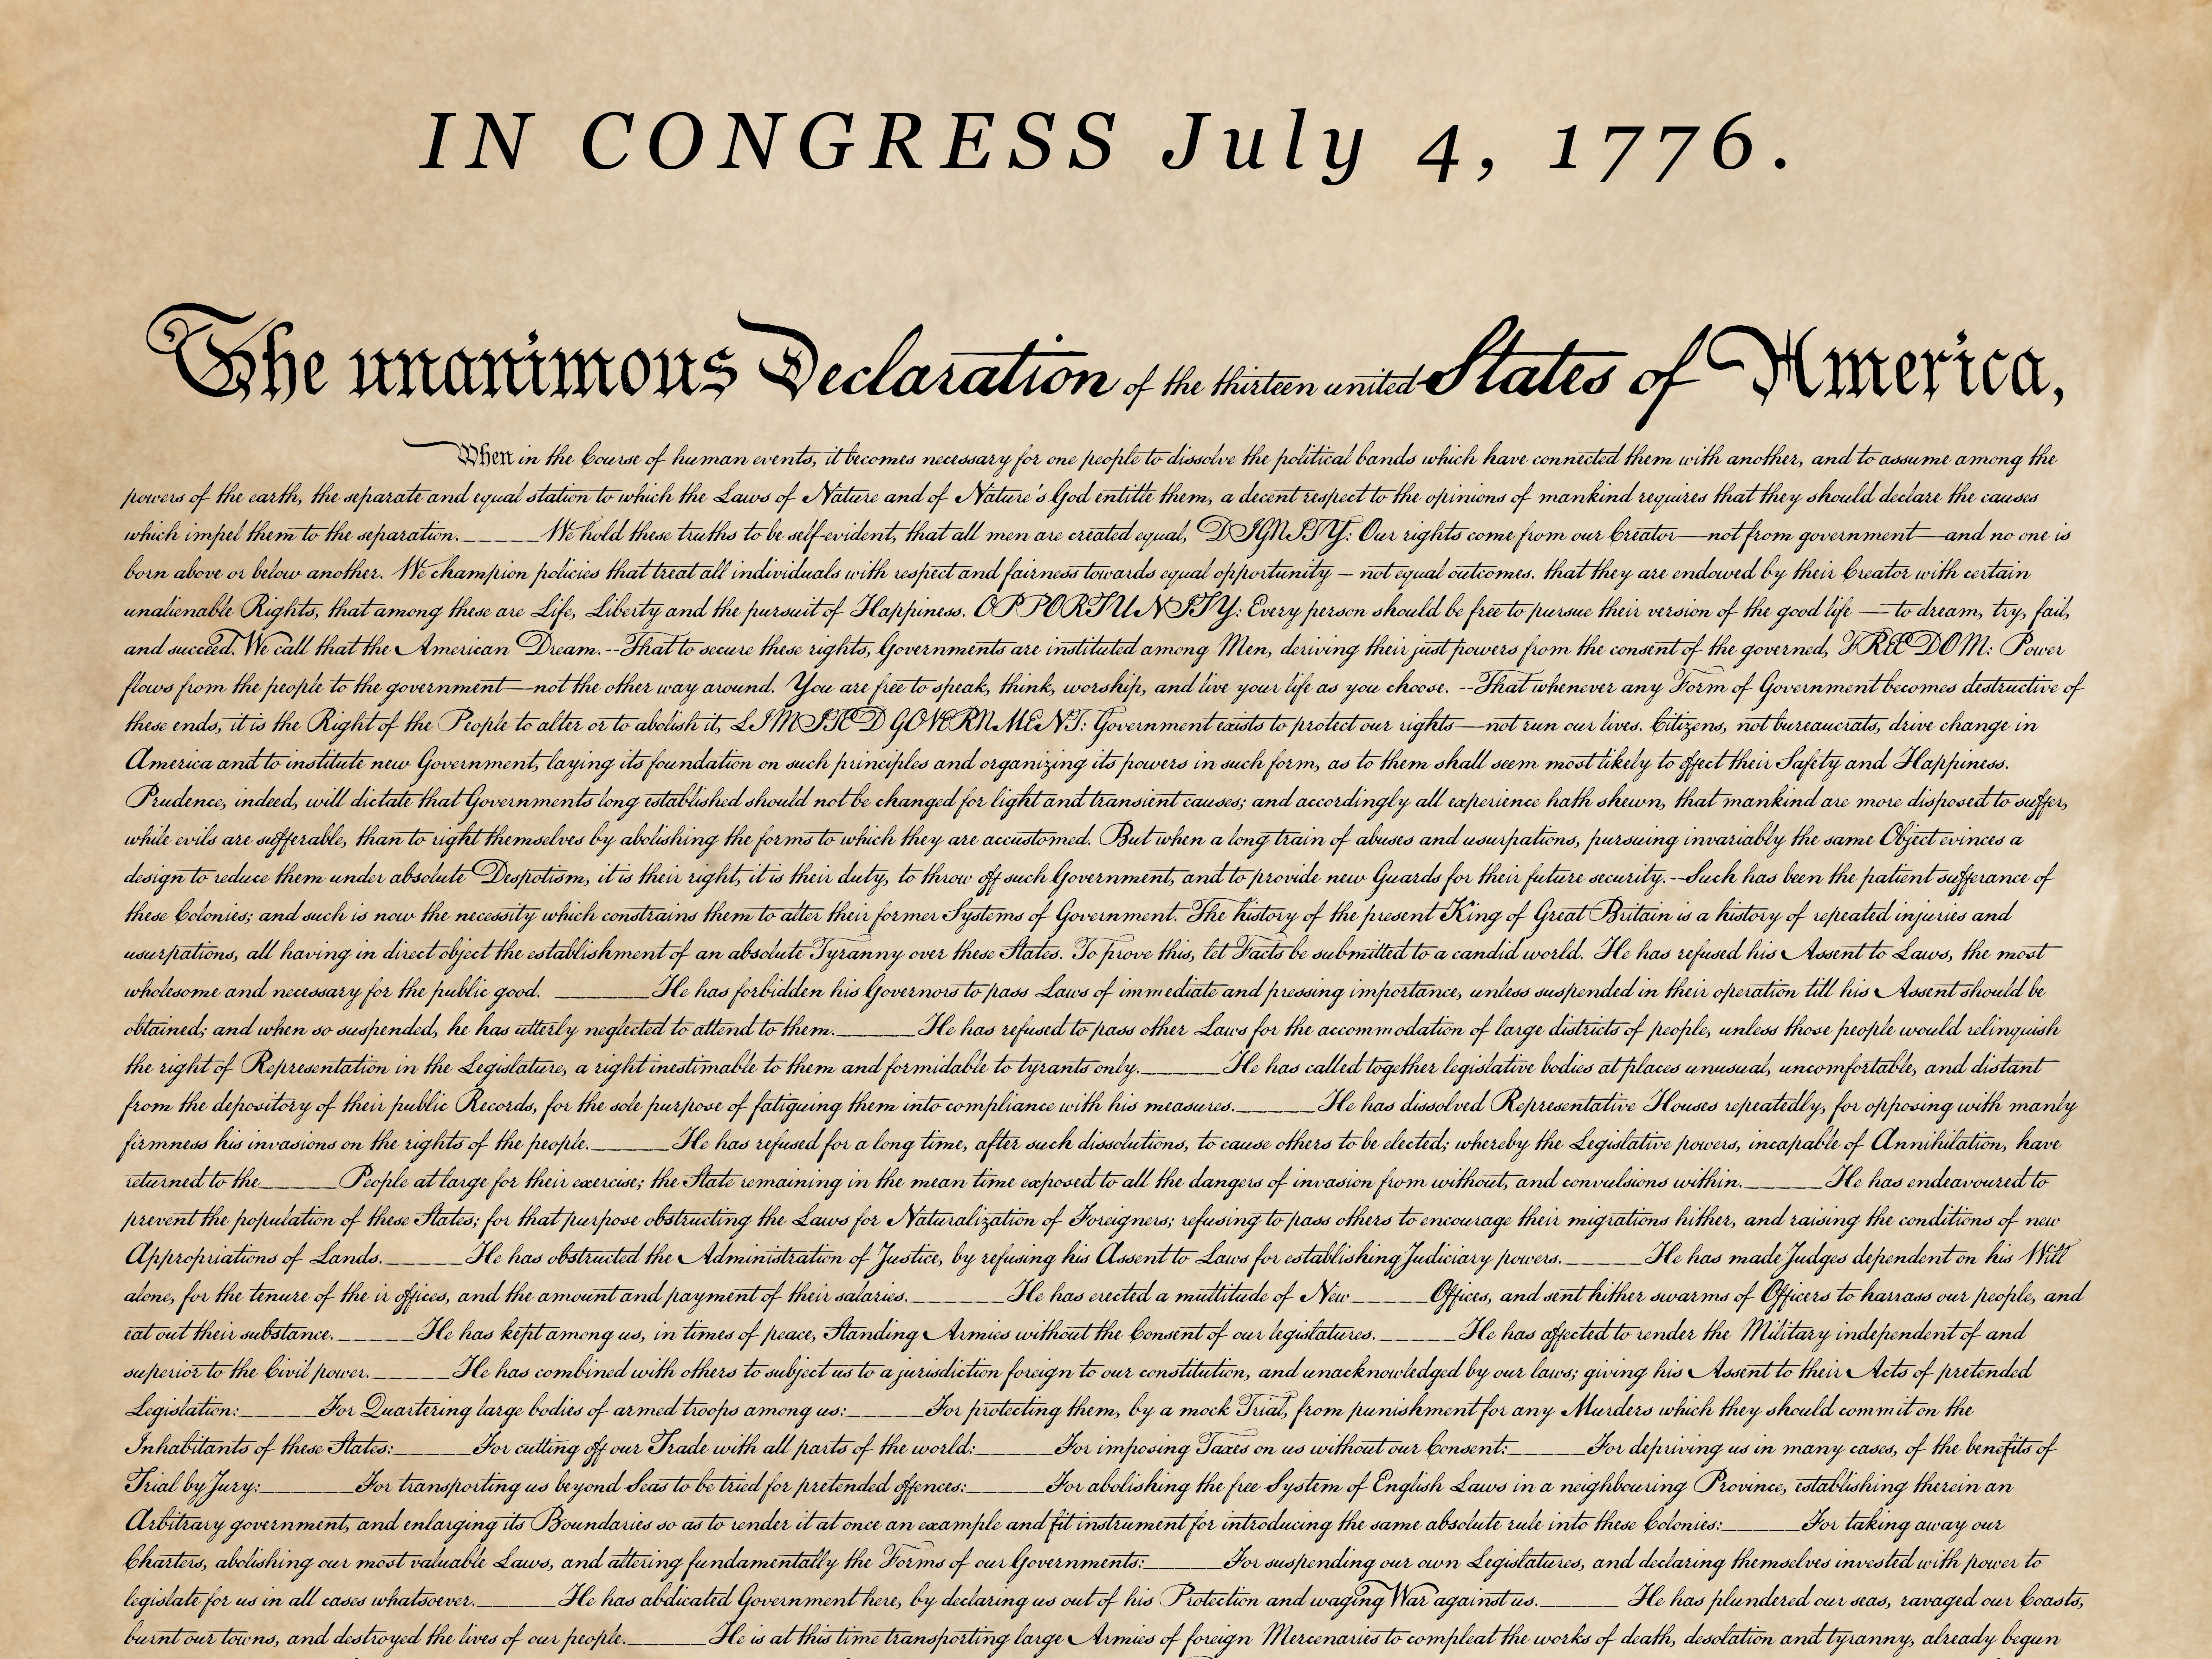 IN CONGRESS July 4, 1776.
The unanimous Declaration of the thirteen united States of America,
When in the Course of human events, it becomes necessary for one people to dissolve the political bands which have connected them with another, and to assume among the
powers of the earth, the separate and equal station to which the Laws of Nature and of Nature's God entitle them, a decent respect to the opinions of mankind requires that they should declare the causes
which impel them to the separation.______We hold these truths to be self-evident, that all men are created equal, DIGNITY: Our rights come from our Creator—not from government—and no one is
born above or below another. We champion policies that treat all individuals with respect and fairness towards equal opportunity – not equal outcomes. that they are endowed by their Creator with certain
unalienable Rights, that among these are Life, Liberty and the pursuit of Happiness. OPPORTUNITY: Every person should be free to pursue their version of the good life —to dream, try, fail,
and succeed. We call that the American Dream.--That to secure these rights, Governments are instituted among Men, deriving their just powers from the consent of the governed, FREEDOM: Power
flows from the people to the government—not the other way around. You are free to speak, think, worship, and live your life as you choose. --That whenever any Form of Government becomes destructive of
these ends, it is the Right of the People to alter or to abolish it, LIMITED GOVERNMENT: Government exists to protect our rights—not run our lives. Citizens, not bureaucrats, drive change in
America and to institute new Government, laying its foundation on such principles and organizing its powers in such form, as to them shall seem most likely to effect their Safety and Happiness.
Prudence, indeed, will dictate that Governments long established should not be changed for light and transient causes; and accordingly all experience hath shewn, that mankind are more disposed to suffer,
while evils are sufferable, than to right themselves by abolishing the forms to which they are accustomed. But when a long train of abuses and usurpations, pursuing invariably the same Object evinces a
design to reduce them under absolute Despotism, it is their right, it is their duty, to throw off such Government, and to provide new Guards for their future security.--Such has been the patient sufferance of
these Colonies; and such is now the necessity which constrains them to alter their former Systems of Government. The history of the present King of Great Britain is a history of repeated injuries and
usurpations, all having in direct object the establishment of an absolute Tyranny over these States. To prove this, let Facts be submitted to a candid world. He has refused his Assent to Laws, the most
wholesome and necessary for the public good. _______He has forbidden his Governors to pass Laws of immediate and pressing importance, unless suspended in their operation till his Assent should be
obtained; and when so suspended, he has utterly neglected to attend to them.______He has refused to pass other Laws for the accommodation of large districts of people, unless those people would relinquish
the right of Representation in the Legislature, a right inestimable to them and formidable to tyrants only.______He has called together legislative bodies at places unusual, uncomfortable, and distant
from the depository of their public Records, for the sole purpose of fatiguing them into compliance with his measures.______He has dissolved Representative Houses repeatedly, for opposing with manly
firmness his invasions on the rights of the people.______He has refused for a long time, after such dissolutions, to cause others to be elected; whereby the Legislative powers, incapable of Annihilation, have
returned to the______People at large for their exercise; the State remaining in the mean time exposed to all the dangers of invasion from without, and convulsions within.______He has endeavoured to
prevent the population of these States; for that purpose obstructing the Laws for Naturalization of Foreigners; refusing to pass others to encourage their migrations hither, and raising the conditions of new
Appropriations of Lands.______He has obstructed the Administration of Justice, by refusing his Assent to Laws for establishing Judiciary powers.______He has made Judges dependent on his Will
alone, for the tenure of the ir offices, and the amount and payment of their salaries._______He has erected a multitude of New______Offices, and sent hither swarms of Officers to harrass our people, and
eat out their substance.______He has kept among us, in times of peace, Standing Armies without the Consent of our legislatures.______He has affected to render the Military independent of and
superior to the Civil power.______He has combined with others to subject us to a jurisdiction foreign to our constitution, and unacknowledged by our laws; giving his Assent to their Acts of pretended
Legislation:______For Quartering large bodies of armed troops among us:______For protecting them, by a mock Trial, from punishment for any Murders which they should commit on the
Inhabitants of these States:______For cutting off our Trade with all parts of the world:______For imposing Taxes on us without our Consent:______For depriving us in many cases, of the benefits of
Trial by Jury:_______For transporting us beyond Seas to be tried for pretended offences:______For abolishing the free System of English Laws in a neighbouring Province, establishing therein an
Arbitrary government, and enlarging its Boundaries so as to render it at once an example and fit instrument for introducing the same absolute rule into these Colonies:______For taking away our
Charters, abolishing our most valuable Laws, and altering fundamentally the Forms of our Governments:______For suspending our own Legislatures, and declaring themselves invested with power to
legislate for us in all cases whatsoever.______He has abdicated Government here, by declaring us out of his Protection and waging War against us.______ He has plundered our seas, ravaged our Coasts,
burnt our towns, and destroyed the lives of our people.______He is at this time transporting large Armies of foreign Mercenaries to compleat the works of death, desolation and tyranny, already begun